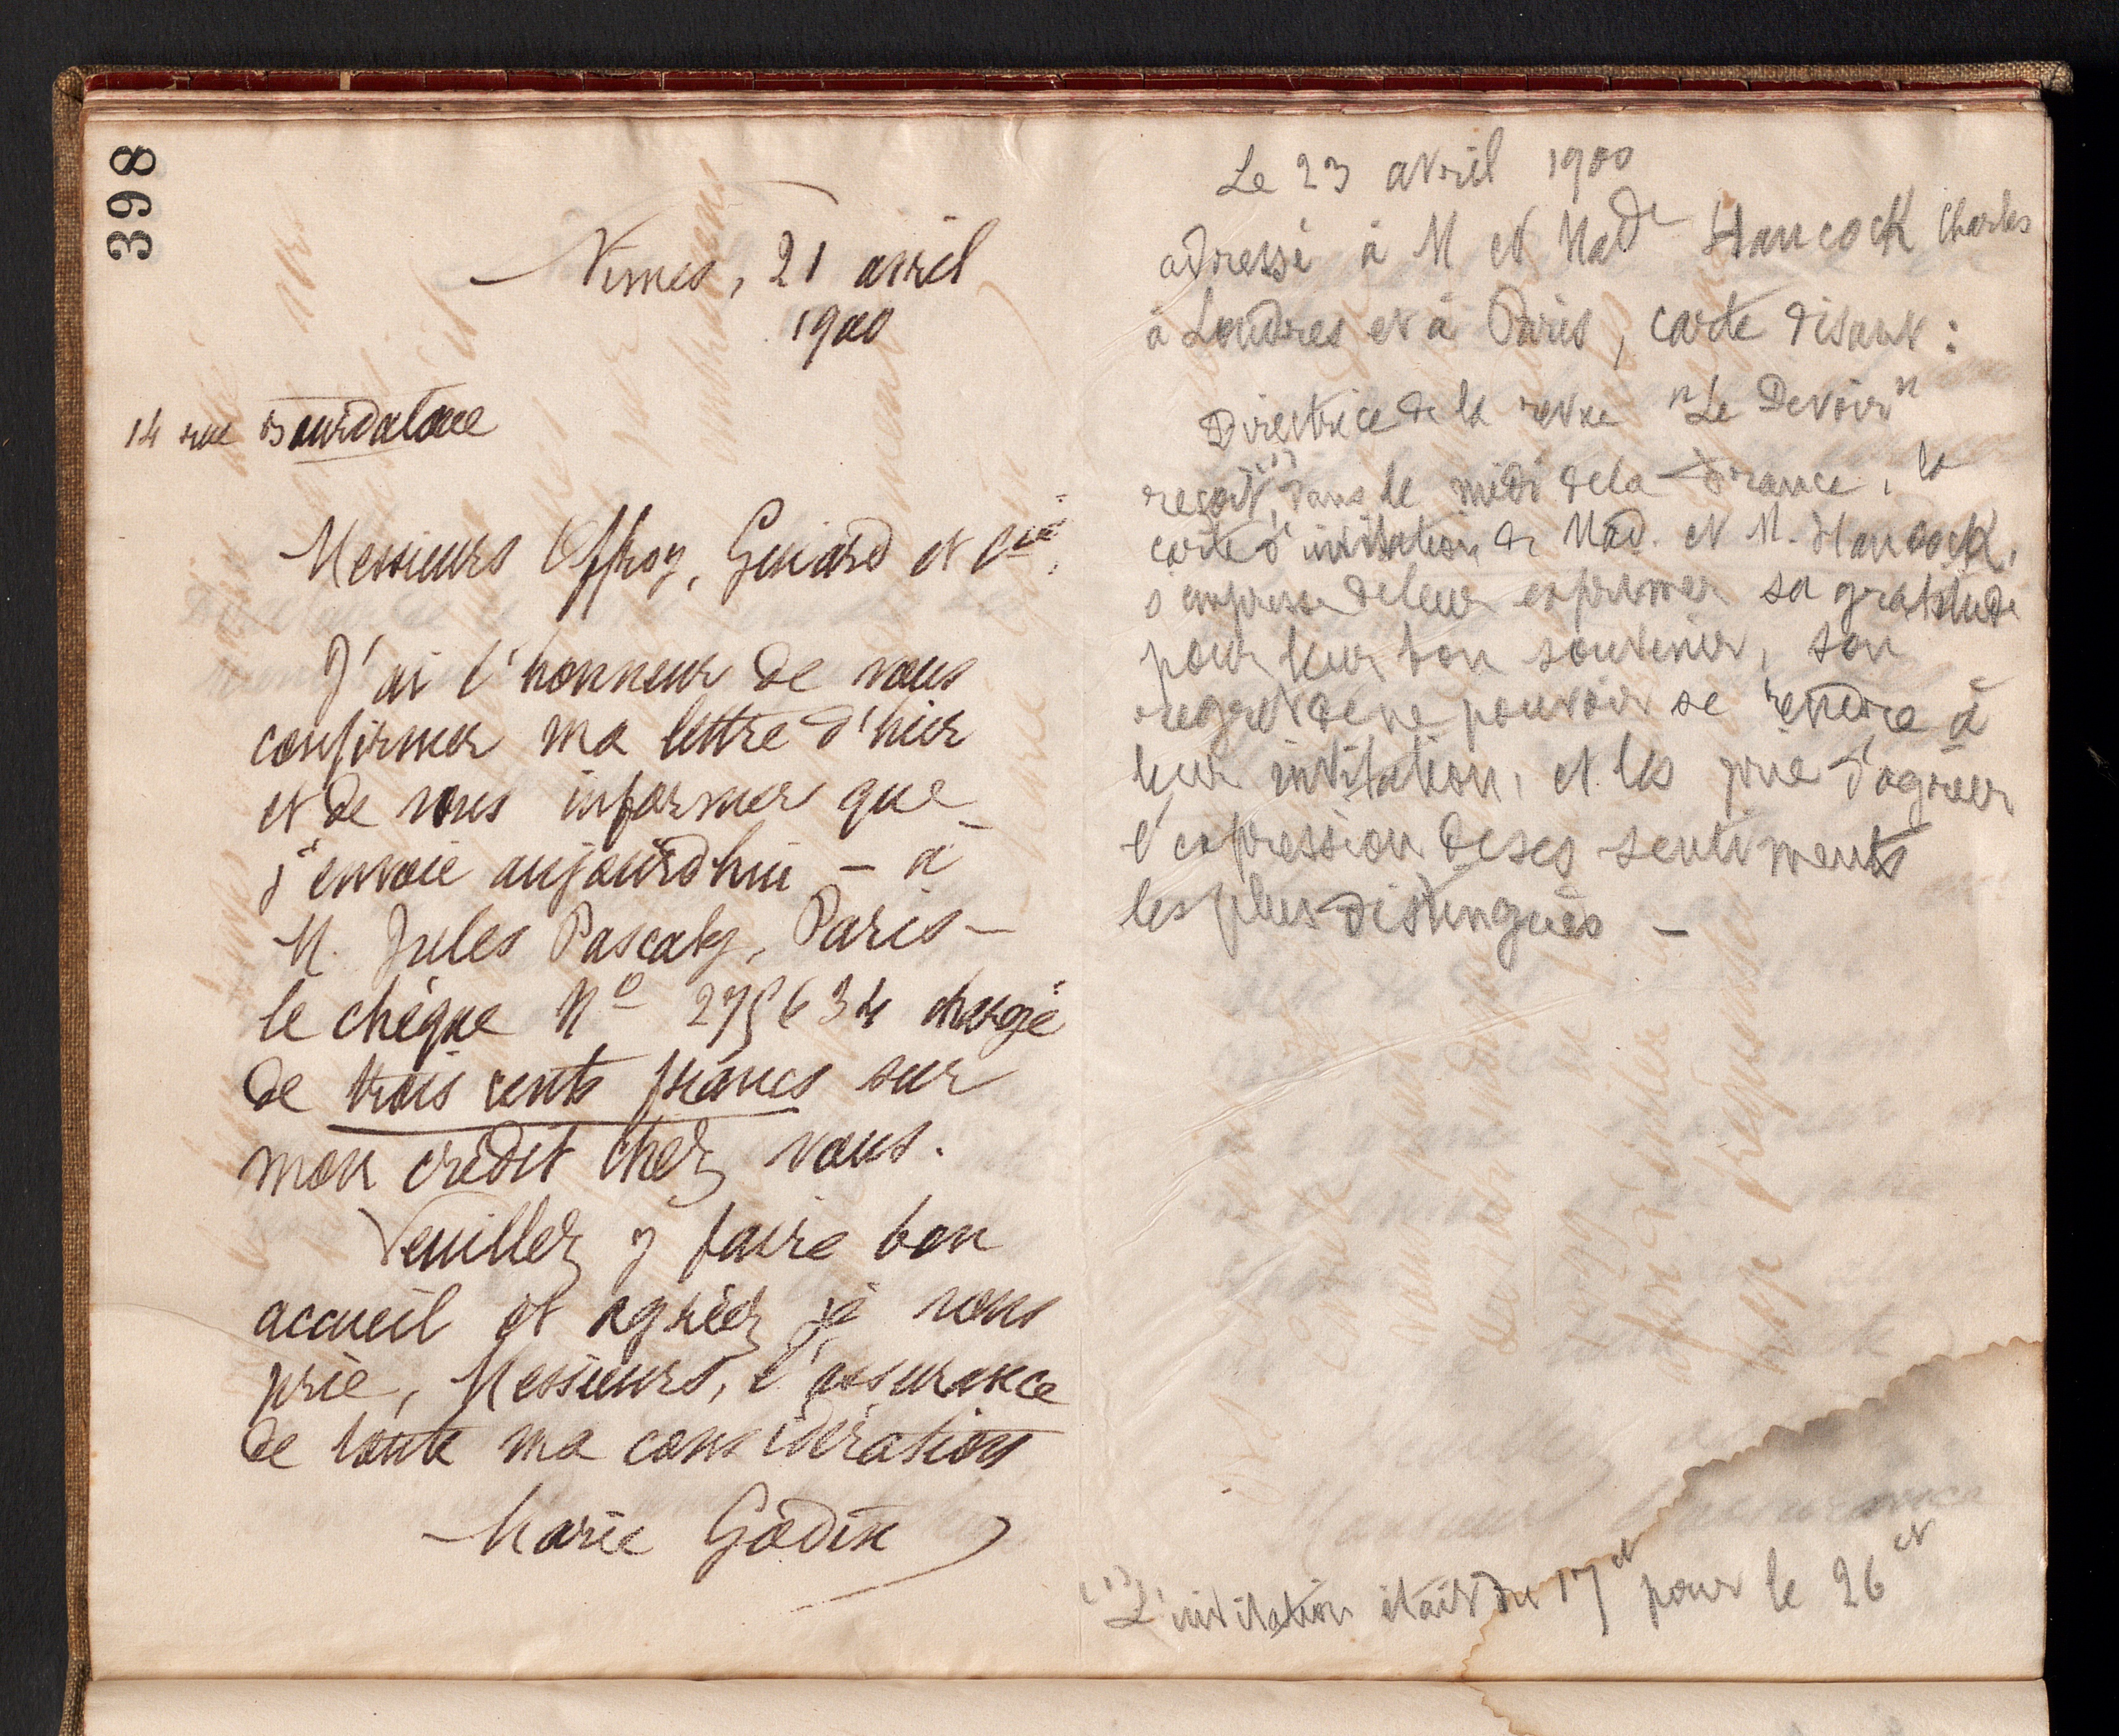 398
Nimes, 21 avril
1900
14 rue Bourdaloue
Messieurs Offroy, Guiard et Cie,
J'ai l'honneur de vous
confirmer ma lettre d'hier
et de vous informer que
j'envoie aujourd'hui – à
M. Jules Pascaly, Paris –
le chèque No 275634 chargé
de trois cents francs sur
mon crédit chez vous.
Veuillez y faire bon
accueil et agréez je vous
prie, Messieurs, l'assurance
de toute ma considération
Marie Godin
Le 23 avril 1900
adressé à M et Made Hancock Charles
à Londres et à Paris, carte disant :
Directrice de la revue "Le Devoir"
reçoit (1), dans le midi de la France, la
carte d'invitation de Mad. et M. Hancock,
s'empresse de leur exprimer sa gratitude
pour leur bon souvenir, son
regret de ne pouvoir se rendre à
leur invitation, et les prie d'agréer
l'expression de ses sentiments
les plus distingués –
(1) L'invitation était du 17 ct pour le 26 ct